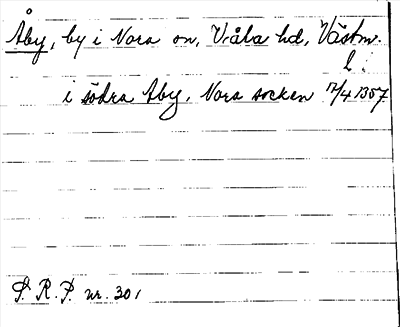 Åby, by i Nora sn, Våla hd, Västm.
l.
i södra Aby, Nora socken 17/4 1357
S. R. P. nr. 301